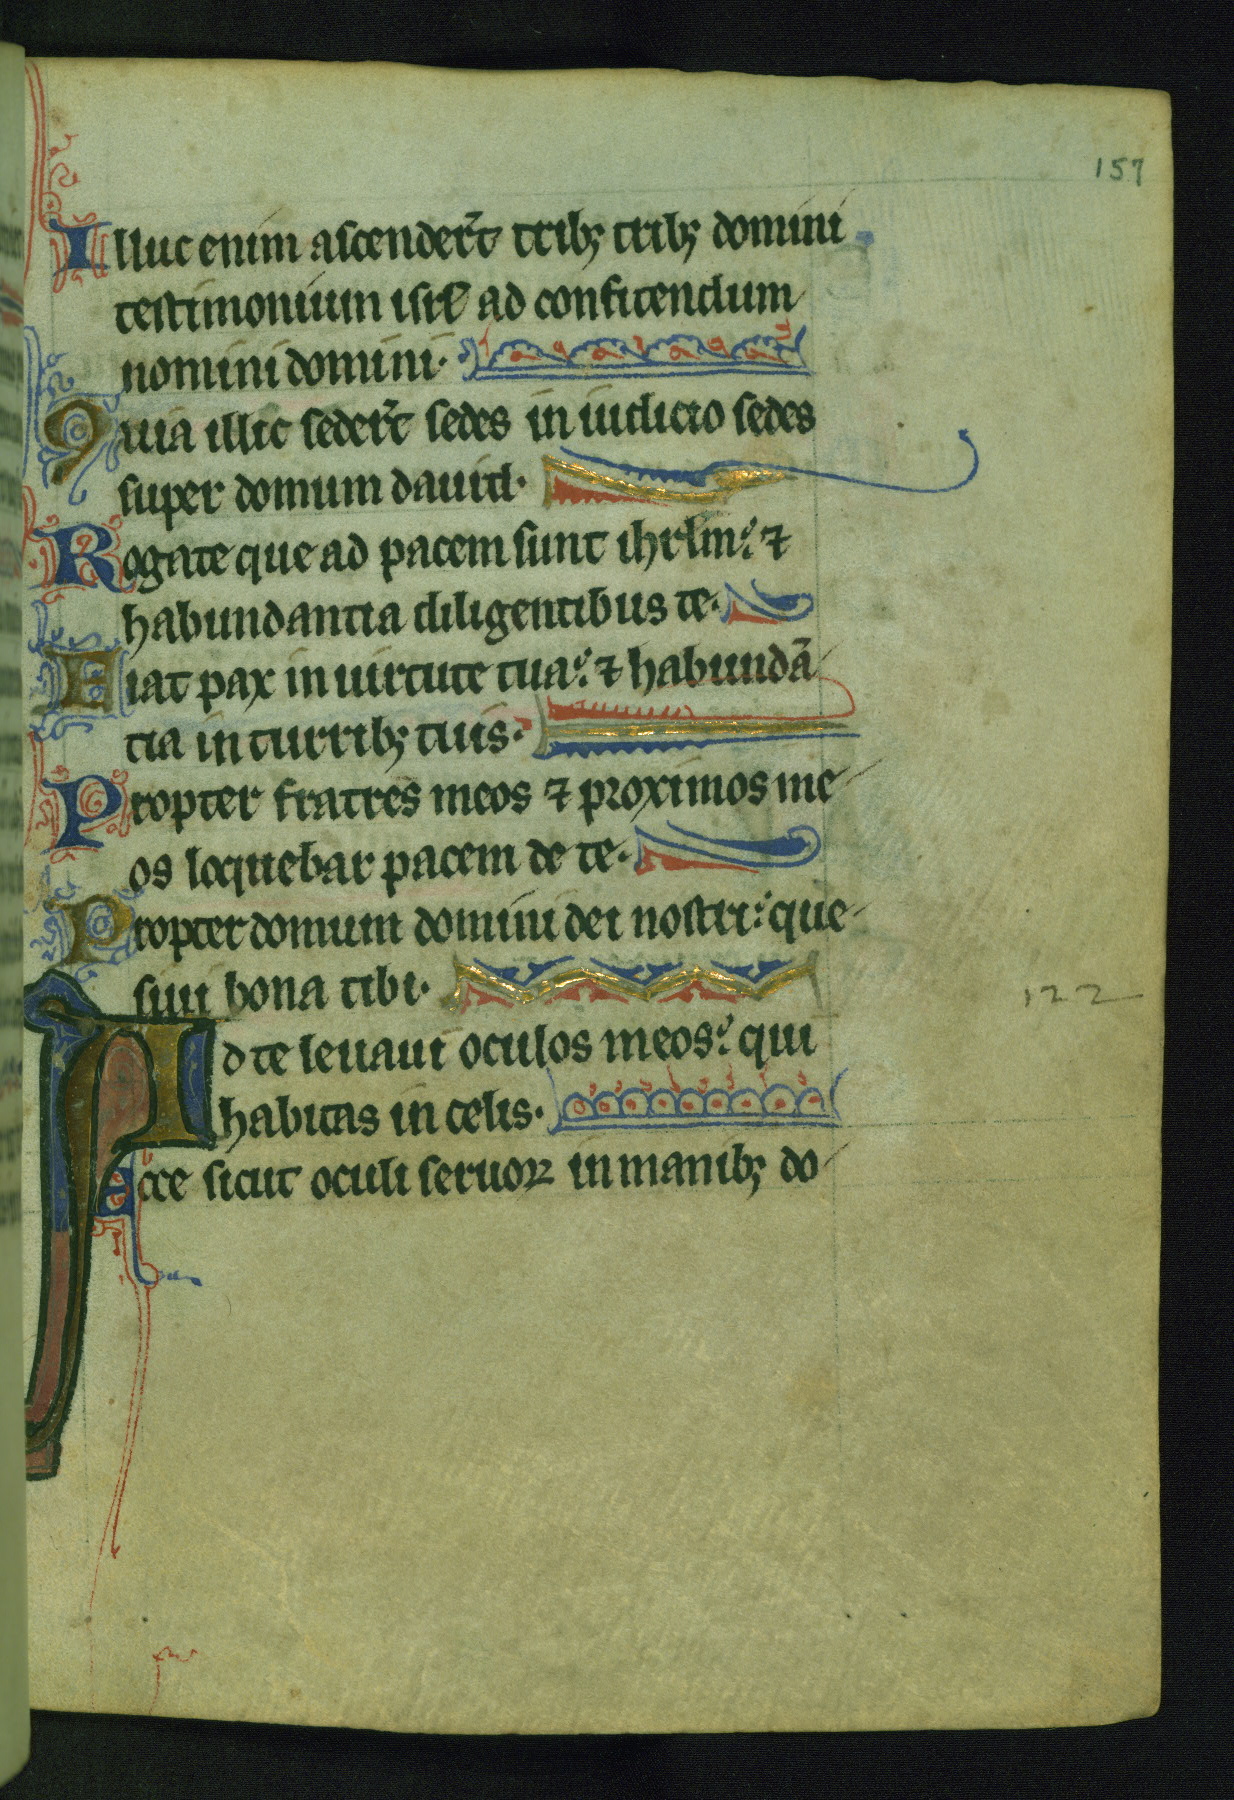 157
Illuc enim ascender̄t tribꝫ tribꝫ domini
testimonium isrl̄ ad confitendum
nomini domini·
Quia illic seder̄t sedes in iudicio sedes
super domum dauid·
Rogate que ad pacem sunt ihrlm̄: ⁊
habundantia diligentibus te·
Fiat pax in uirtute tua: ⁊ habundā
tia in turribꝫ tuis·
Propter fratres meos ⁊ proximos me
os loquebar pacem de te·
Propter domum domini dei nostri: que
siui bona tibi·
122
Ad te leuaui oculos meos: qui
habitas in celis·
Ecce sicut oculi seruoꝝ in manibꝫ do